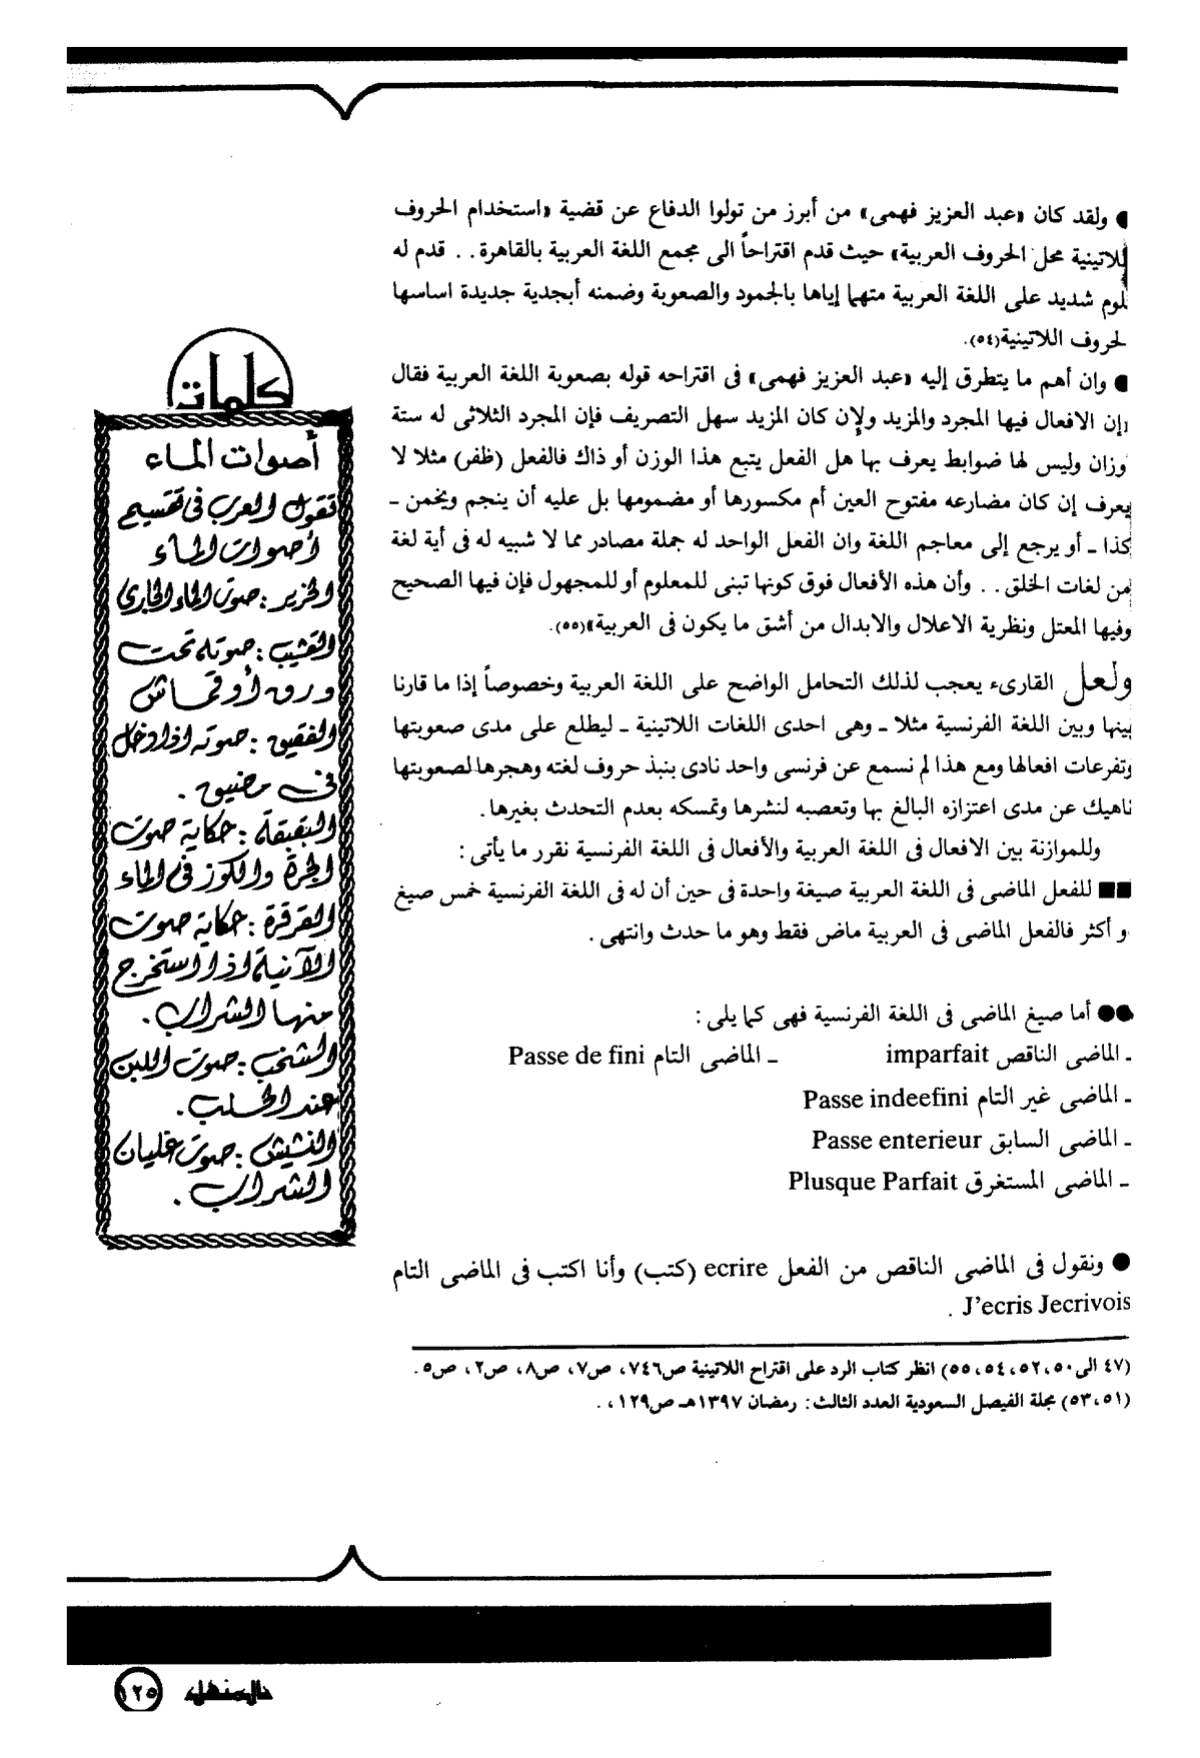 ● ولقد كان «عبد العزيز فهمى» من أبرز من تولوا الدفاع عن قضية «استخدام الحروف
للاتينية محل الحروف العربية» حيث قدم اقتراحاً الى مجمع اللغة العربية بالقاهرة . . قدم له
لوم شديد على اللغة العربية متهما إياها بالجمود والصعوبة وضمنه أبجدية جديدة اساسها
لحروف اللاتينية(٥٤).
● وان أهم ما يتطرق إليه «عبد العزيز فهمى» فى اقتراحه قوله بصعوبة اللغة العربية فقال
إن الافعال فيها المجرد والمزيد ولإن كان المزيد سهل التصريف فإن المجرد الثلاثى له ستة
وزان وليس لها ضوابط يعرف بها هل الفعل يتبع هذا الوزن أو ذاك فالفعل (ظفر) مثلا لا
يعرف إن كان مضارعه مفتوح العين أم مكسورها أو مضمومها بل عليه أن ينجم ويخمن ـ
كذا ـ أو يرجع إلى معاجم اللغة وان الفعل الواحد له جملة مصادر مما لا شبيه له فى أية لغة
من لغات الخلق . . وأن هذه الأفعال فوق كونها تبنى للمعلوم أو للمجهول فإن فيها الصحيح
وفيها المعتل ونظرية الاعلال والابدال من أشق ما يكون فى العربية»(٥٥).
ولعل القارىء يعجب لذلك التحامل الواضح على اللغة العربية وخصوصاً إذا ما قارنا
بينها وبين اللغة الفرنسية مثلا ـ وهى احدى اللغات اللاتينية ـ ليطلع على مدى صعوبتها
وتفرعات افعالها ومع هذا لم نسمع عن فرنسى واحد نادى بنبذ حروف لغته وهجرها لصعوبتها
ناهيك عن مدى اعتزازه البالغ بها وتعصبه لنشرها وتمسكه بعدم التحدث بغيرها.
وللموازنة بين الافعال فى اللغة العربية والأفعال فى اللغة الفرنسية نقرر ما يأتى :
■■ للفعل الماضى فى اللغة العربية صيغة واحدة فى حين أن له فى اللغة الفرنسية خمس صيغ
و أكثر فالفعل الماضى فى العربية ماض فقط وهو ما حدث وانتهى .
●● أما صيغ الماضى فى اللغة الفرنسية فهى كما يلى :
ـ الماضى الناقص imparfait ـ الماضى التام Passe de fini
ـ الماضى غير التام Passe indeefini
ـ الماضى السابق Passe enterieur
ـ الماضى المستغرق Plusque Parfait
● ونقول فى الماضى الناقص من الفعل ecrire (كتب) وأنا اكتب فى الماضى التام
J’ecris Jecrivois .
(٤٧ الى ٥٠، ٥٢، ٥٤، ٥٥) انظر كتاب الرد على اقتراح اللاتينية ص٧٤٦، ص٧، ص٨، ص٢، ص٥.
(٥١، ٥٣) مجلة الفيصل السعودية العدد الثالث: رمضان ١٣٩٧هـ ص١٢٩، .
كلمات
أصوات الماء
تقول العرب فى تقسيم
أصوات الماء
الخرير : صوت الماء الجارى
القشيب : صوته تحت
ورق أو قماش
الفقيق : صوته اذا دخل
فى مضيق .
البقبقة : حكاية صوت
الجرة والكوز فى الماء
القرقرة : حكاية صوت
الآنية اذا استخرج
منها الشراب .
الشخب : صوت اللبن
عند الحلب .
النشيش : صوت غليان
الشراب .
المنهل ١٢٥